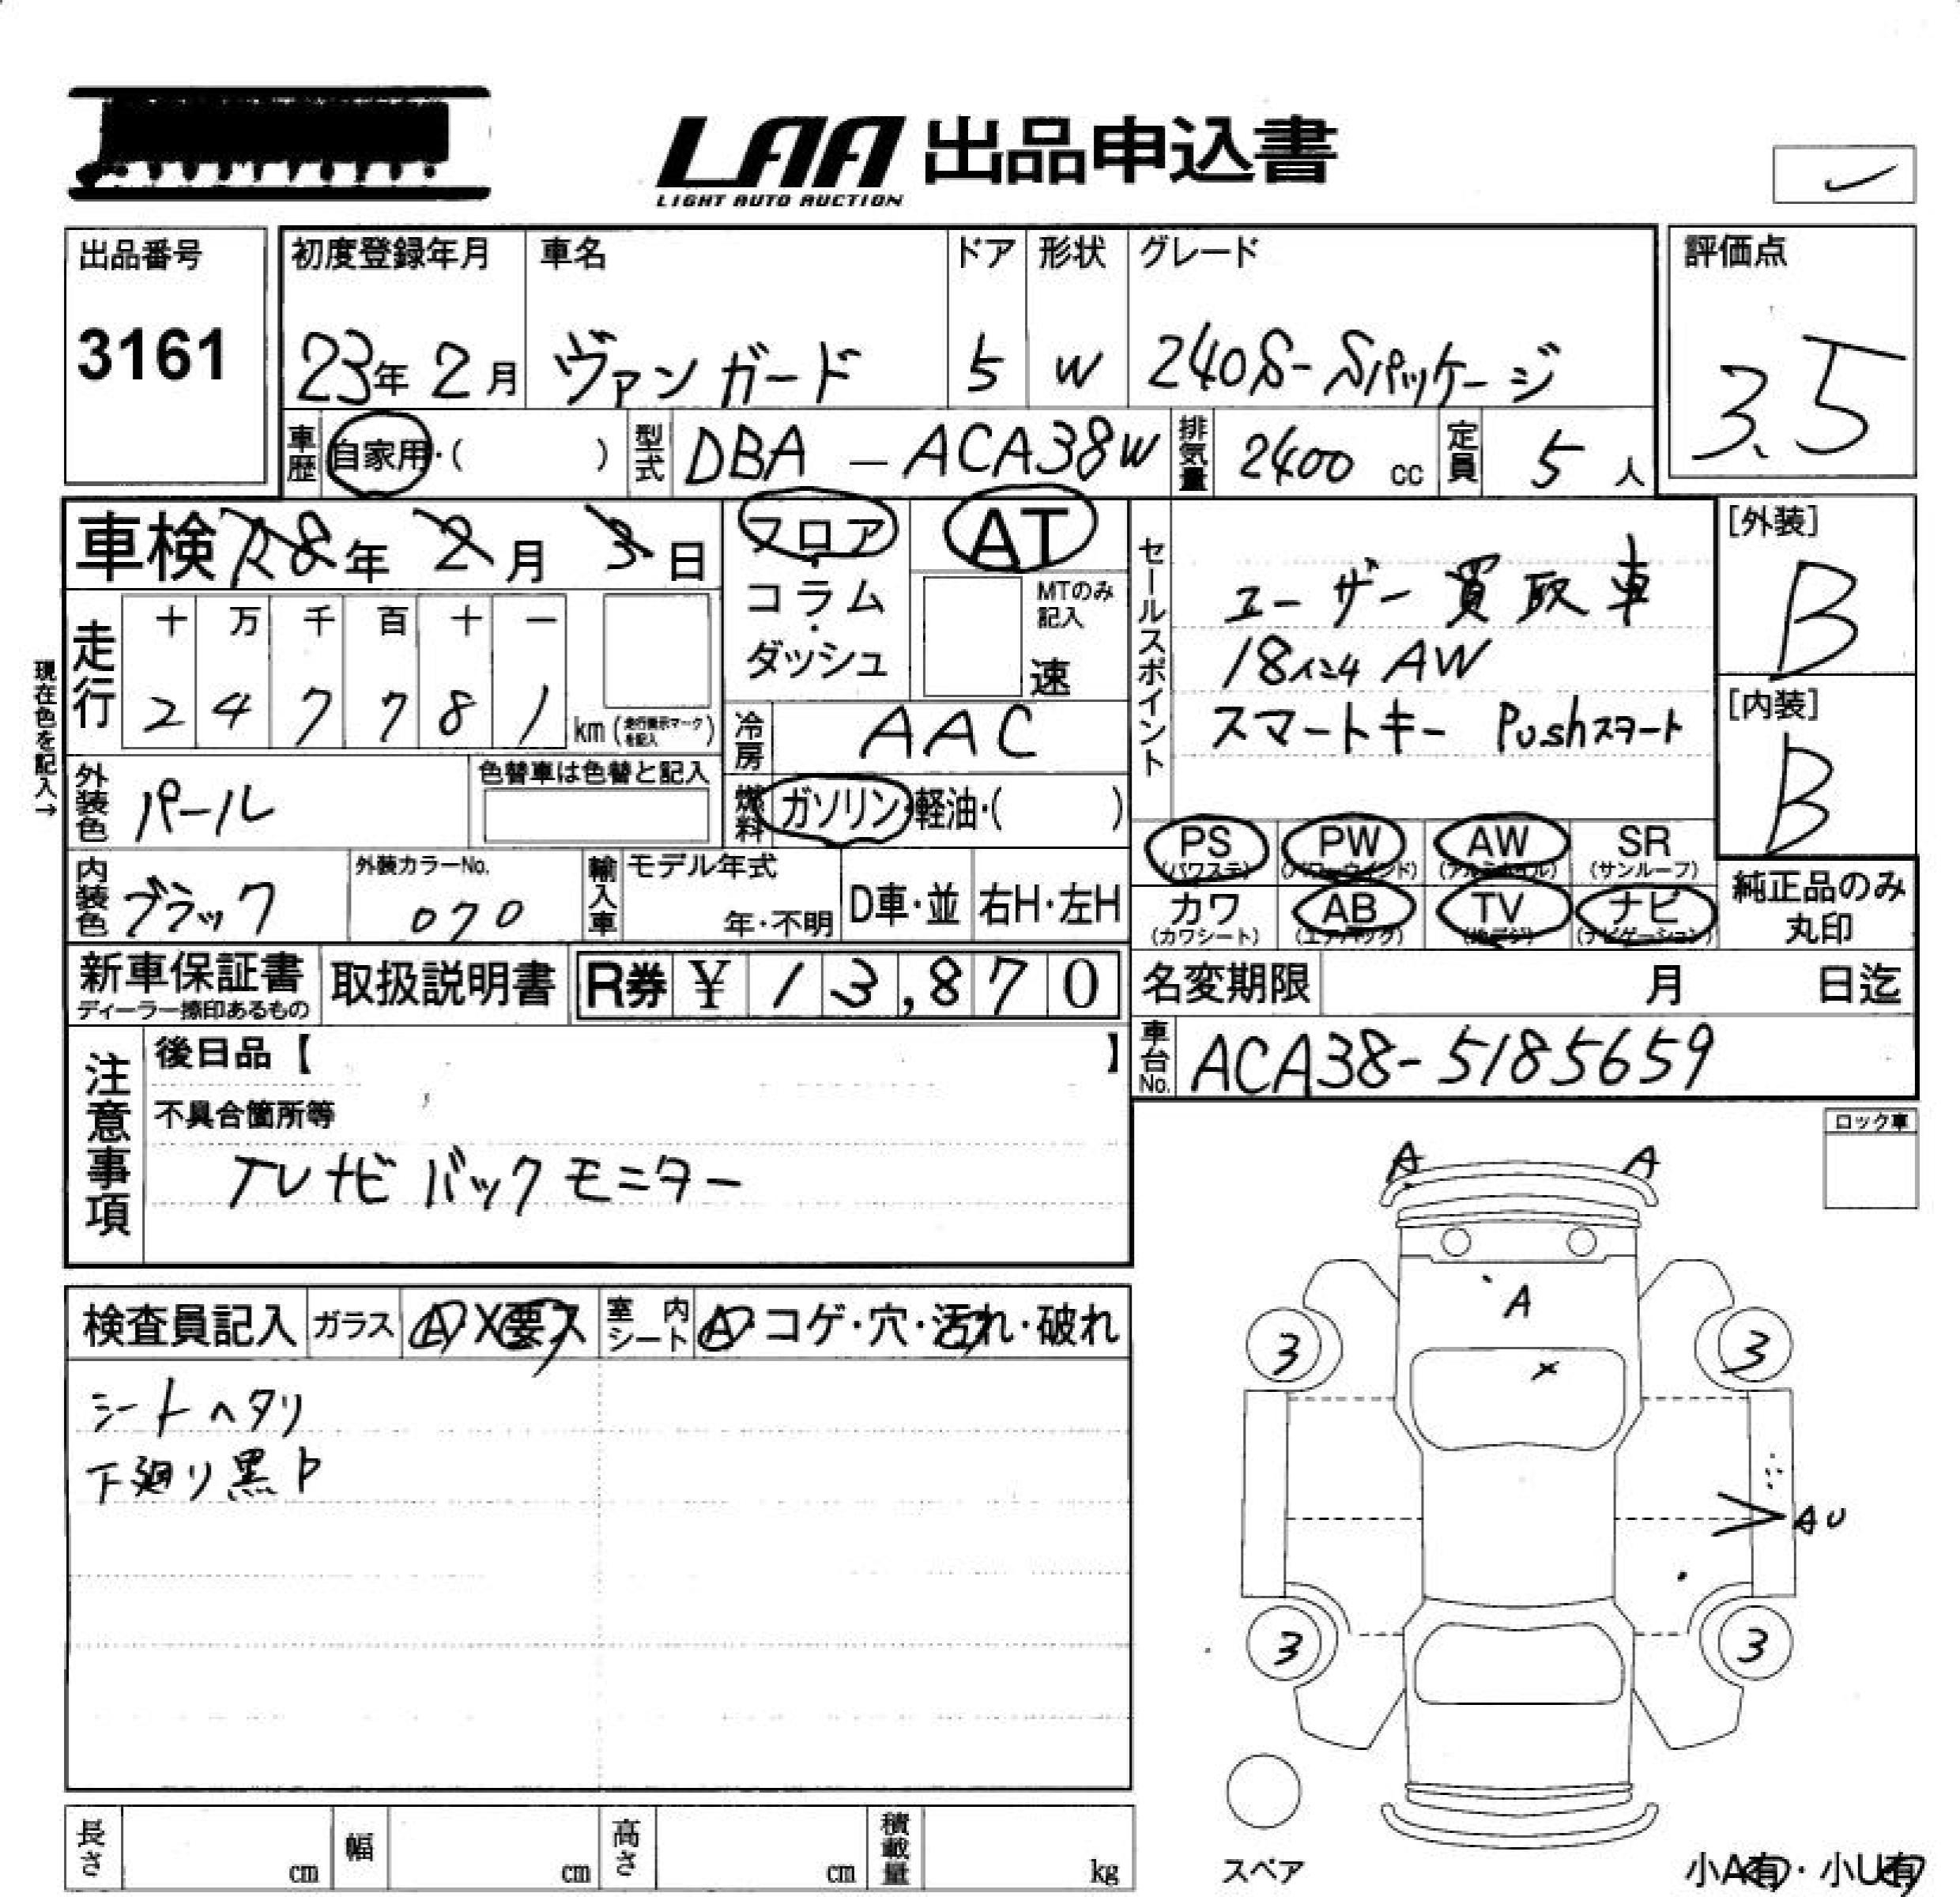 LAA 出品申込書
LIGHT AUTO AUCTION
出品番号
3161
初度登録年月
23年 2月
車名
ヴァンガード
ドア
5
形状
W
グレード
240S-Sパッケージ
評価点
3.5
車歴 自家用・( )
型式 DBA-ACA38W
排気量 2400 cc
定員 5 人
車検 R8年 2月 3日
フロア・コラム・ダッシュ
AT
MTのみ記入
速
セールスポイント
ユーザー買取車
18インチ AW
スマートキー Pushスタート
[外装]
B
[内装]
B
現在色を記入→
走行
十 万 千 百 十 一
2 4 7 7 8 1 km (走行表示マークを記入)
冷房 AAC
外装色 パール
色替車は色替と記入
燃料 ガソリン・軽油・( )
PS (パワステ)
PW (パワーウインド)
AW (アルミホイル)
SR (サンルーフ)
カワ (カワシート)
AB (エアバック)
TV (地デジ)
ナビ (ナビゲーション)
純正品のみ丸印
内装色 ブラック
外装カラーNo.
070
輸入車
モデル年式
年・不明
D車・並
右H・左H
新車保証書
ディーラー捺印あるもの
取扱説明書
R券 ¥ 13,870
名変期限 月 日迄
車台No. ACA38-5185659
注意事項
後日品【 】
不具合箇所等
TVナビ バックモニター
ロック車
検査員記入
ガラス A X 要ス
室内シート A・コゲ・穴・汚れ・破れ
シートヘタリ
下廻り黒P
A A
A
X
3 3
AU
3 3
スペア
長さ cm
幅 cm
高さ cm
積載量 kg
小A有・小U有